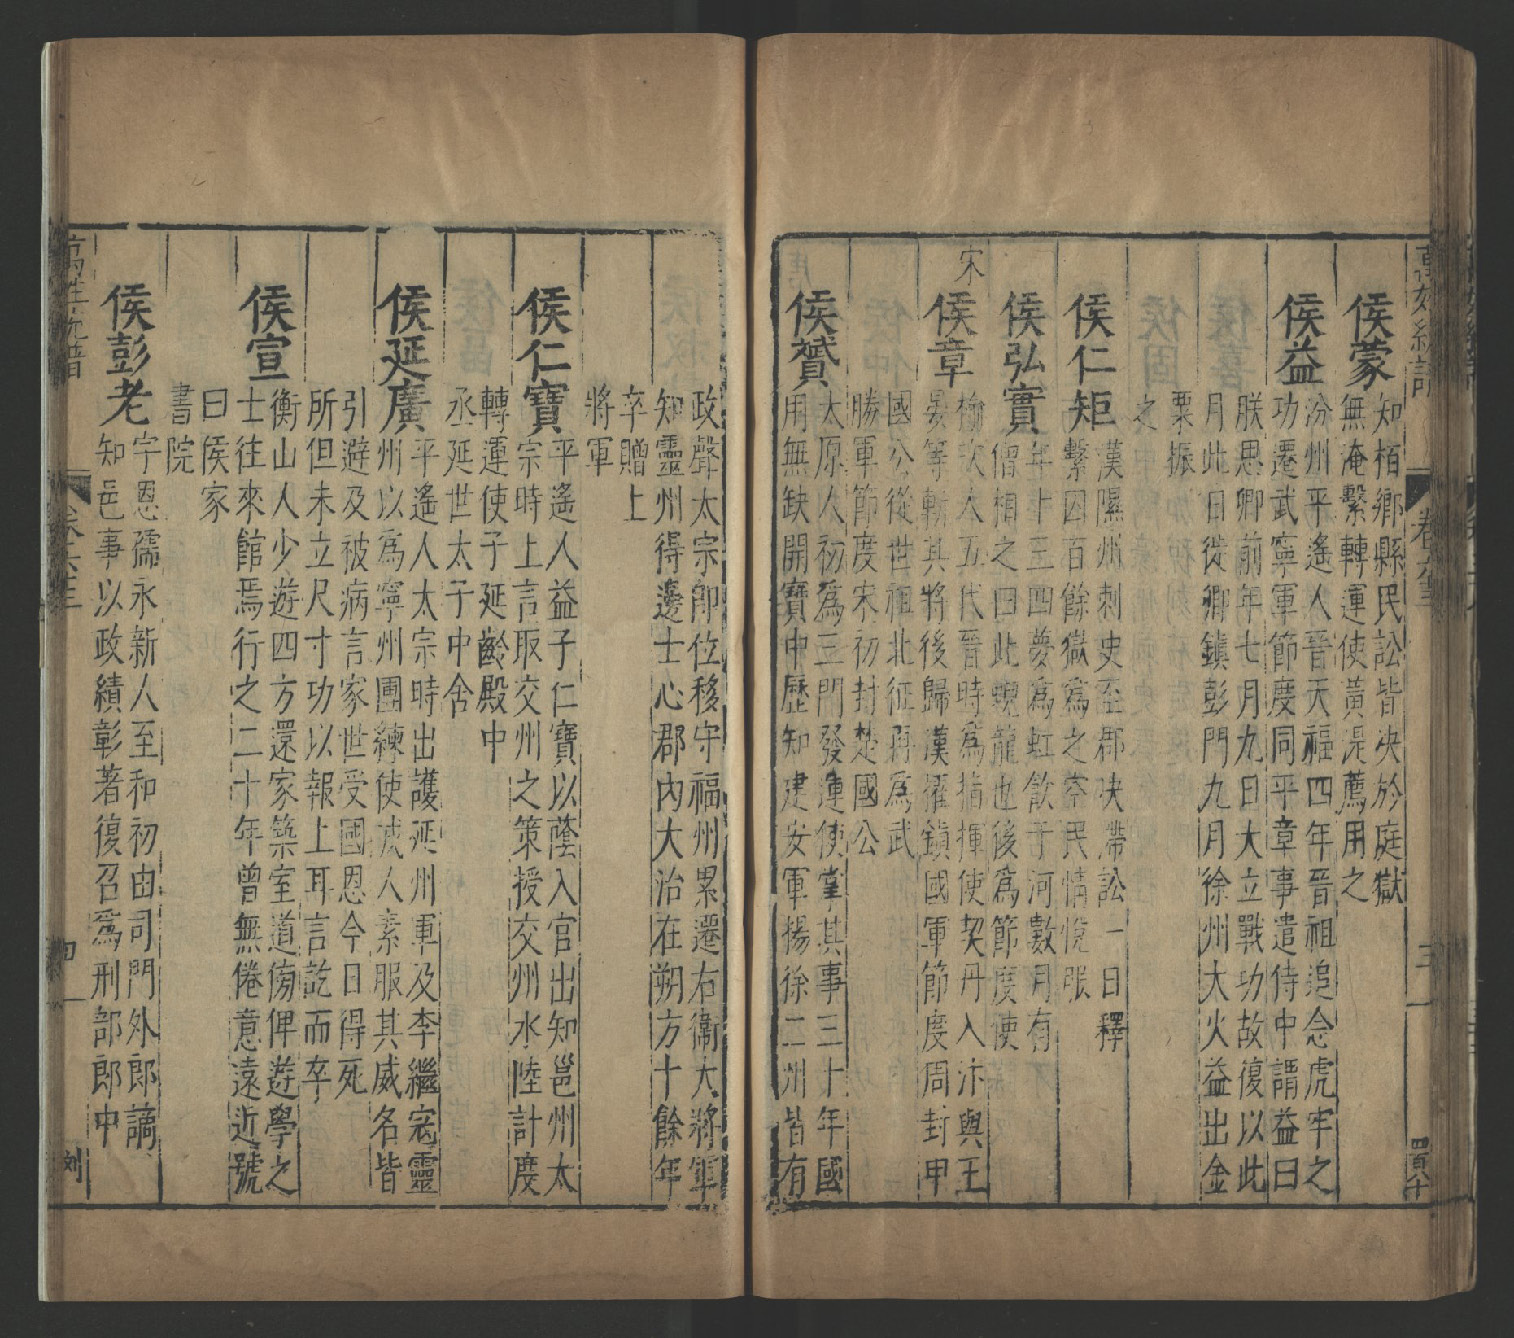 侯蒙
知栢鄉縣民訟皆决於庭獄
無淹繫轉運使黃湜薦用之
侯益
汾州平遙人晉天福四年晉祖追念虎牢之
功遷武寧軍節度同平章事遣侍中謂益曰
朕思卿前年七月九日大立戰功故復以此
月此日徙卿鎮彭門九月徐州大火益出金
粟振
之
侯仁矩
漢隰州刺史至郡决滯訟一日釋
繫囚百餘獄為之空民情悅服
侯弘實
年十三四夢為虹飲于河數月有
僧相之曰此蜺龍也後為節度使
宋
侯章
榆次人五代晉時為指揮使契丹入汴與王
晏等斬其將後歸漢擢鎮國軍節度周封申
國公從世祖北征再為武
勝軍節度宋初封楚國公
侯贇
太原人初為三門發運使掌其事三十年國
用無缺開寶中歷知建安軍揚徐二州皆有
政聲太宗即位移守福州累遷右衞大將軍
知靈州得邊士心郡內大治在朔方十餘年
卒贈上
將軍
侯仁寶
平遙人益子仁寶以蔭入官出知邕州太
宗時上言取交州之策授交州水陸計度
轉運使子延齡殿中
丞延世太子中舍
侯延廣
平遙人太宗時出護延州軍及李繼宼靈
州以為寧州團練使戎人素服其威名皆
引避及被病言家世受國恩今日得死
所但未立尺寸功以報上耳言訖而卒
侯宣
衡山人少遊四方還家築室道傍俾遊學之
士往來館焉行之二十年曾無倦意遠近號
曰侯家
書院
侯彭老
字恩孺永新人至和初由司門外郎謫
知邑事以政績彰著復召為刑部郎中